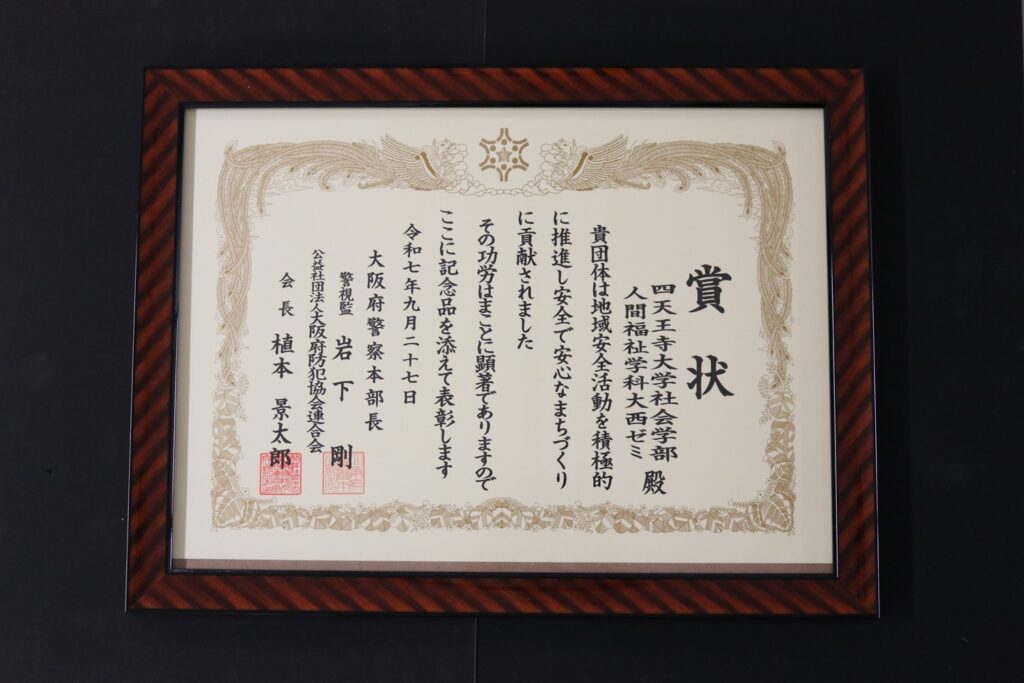 賞状
四天王寺大学社会学部
人間福祉学科大西ゼミ 殿
貴団体は地域安全活動を積極的
に推進し安全で安心なまちづくり
に貢献されました
その功労はまことに顕著でありますので
ここに記念品を添えて表彰します
令和七年九月二十七日
大阪府警察本部長
警視監 岩下 剛
公益社団法人大阪府防犯協会連合会
会長 植本 景太郎